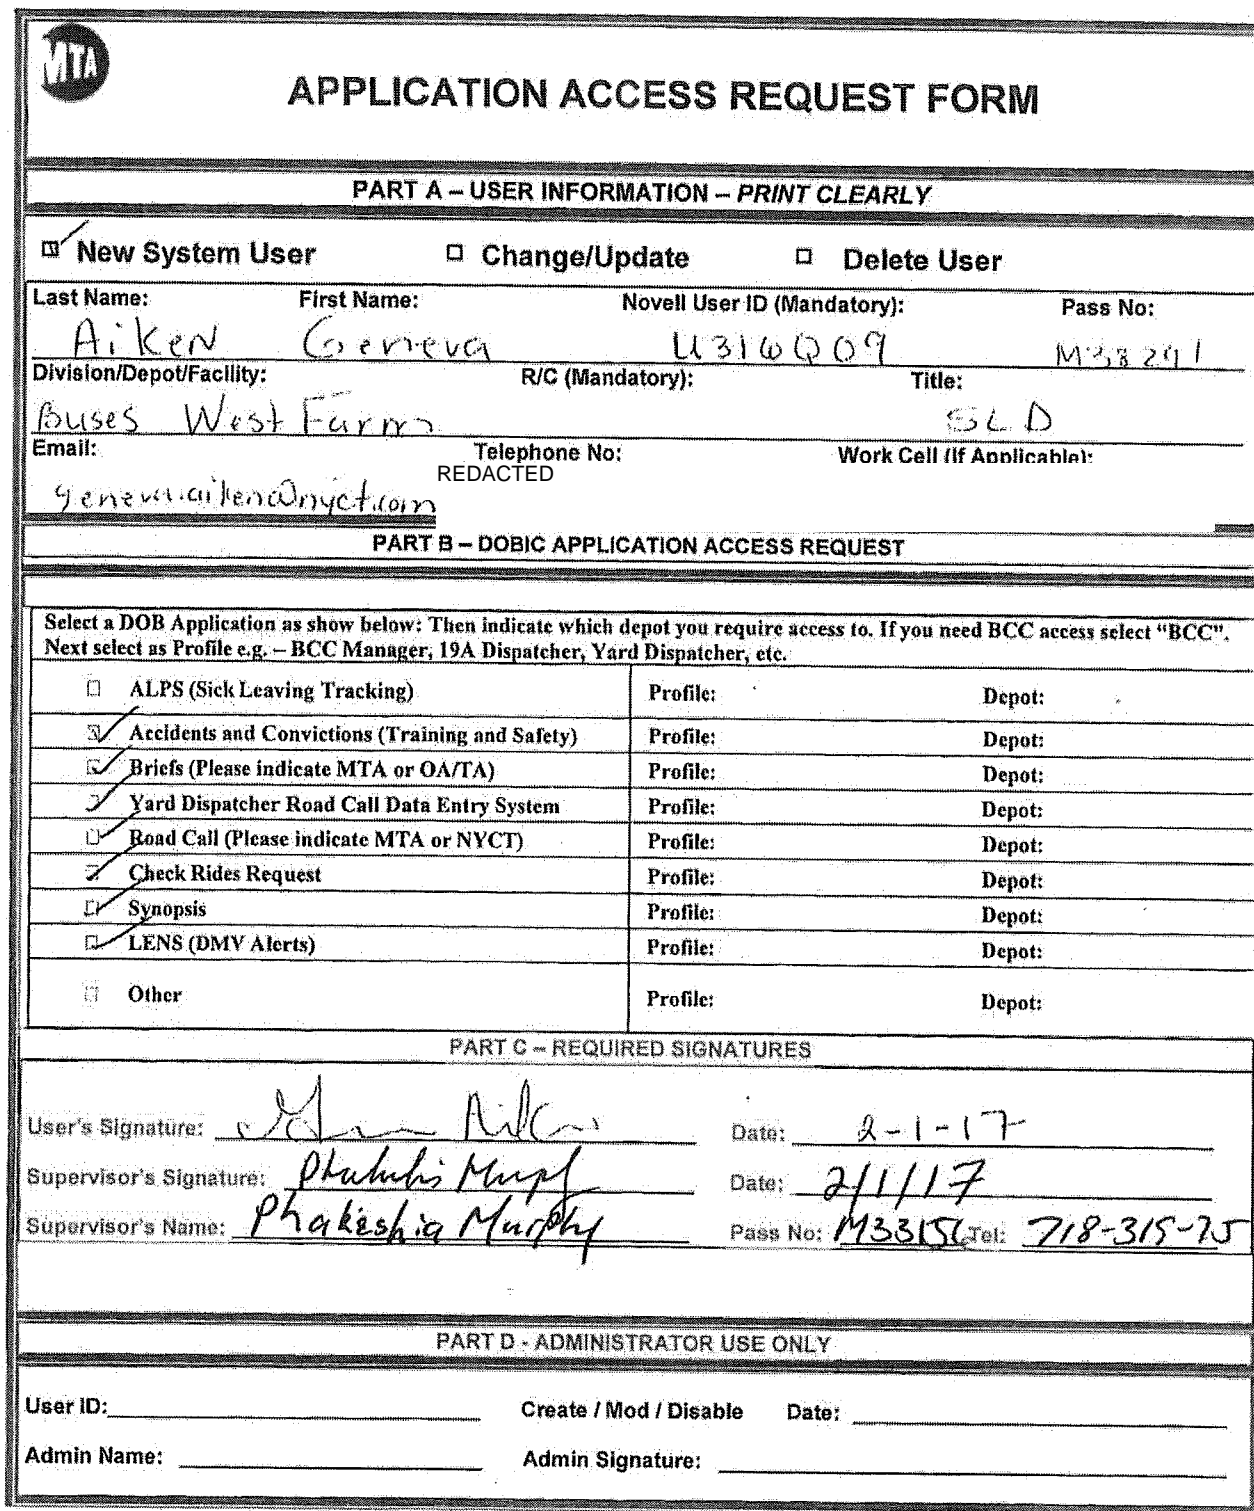 MTA
APPLICATION ACCESS REQUEST FORM
PART A – USER INFORMATION – PRINT CLEARLY
New System User Change/Update Delete User
Last Name: First Name: Novell User ID (Mandatory): Pass No:
Aiken Geneva M38291
Division/Depot/Facility: R/C (Mandatory): Title:
Buses West Farms SLD
Email: Telephone No: Work Cell (If Applicable):
REDACTED
geneva.aiken@nyct.com
PART B – DOBIC APPLICATION ACCESS REQUEST
Select a DOB Application as show below: Then indicate which depot you require access to. If you need BCC access select “BCC”.
Next select as Profile e.g. – BCC Manager, 19A Dispatcher, Yard Dispatcher, etc.
ALPS (Sick Leaving Tracking) Profile: Depot:
Accidents and Convictions (Training and Safety) Profile: Depot:
Briefs (Please indicate MTA or OA/TA) Profile: Depot:
Yard Dispatcher Road Call Data Entry System Profile: Depot:
Road Call (Please indicate MTA or NYCT) Profile: Depot:
Check Rides Request Profile: Depot:
Synopsis Profile: Depot:
LENS (DMV Alerts) Profile: Depot:
Other Profile: Depot:
PART C – REQUIRED SIGNATURES
User's Signature: Date: 2-1-17
Supervisor's Signature: Date: 2/1/17
Supervisor's Name: Phakeshia Murphy Pass No: Tel: 718-319-75
PART D - ADMINISTRATOR USE ONLY
User ID: Create / Mod / Disable Date:
Admin Name: Admin Signature: